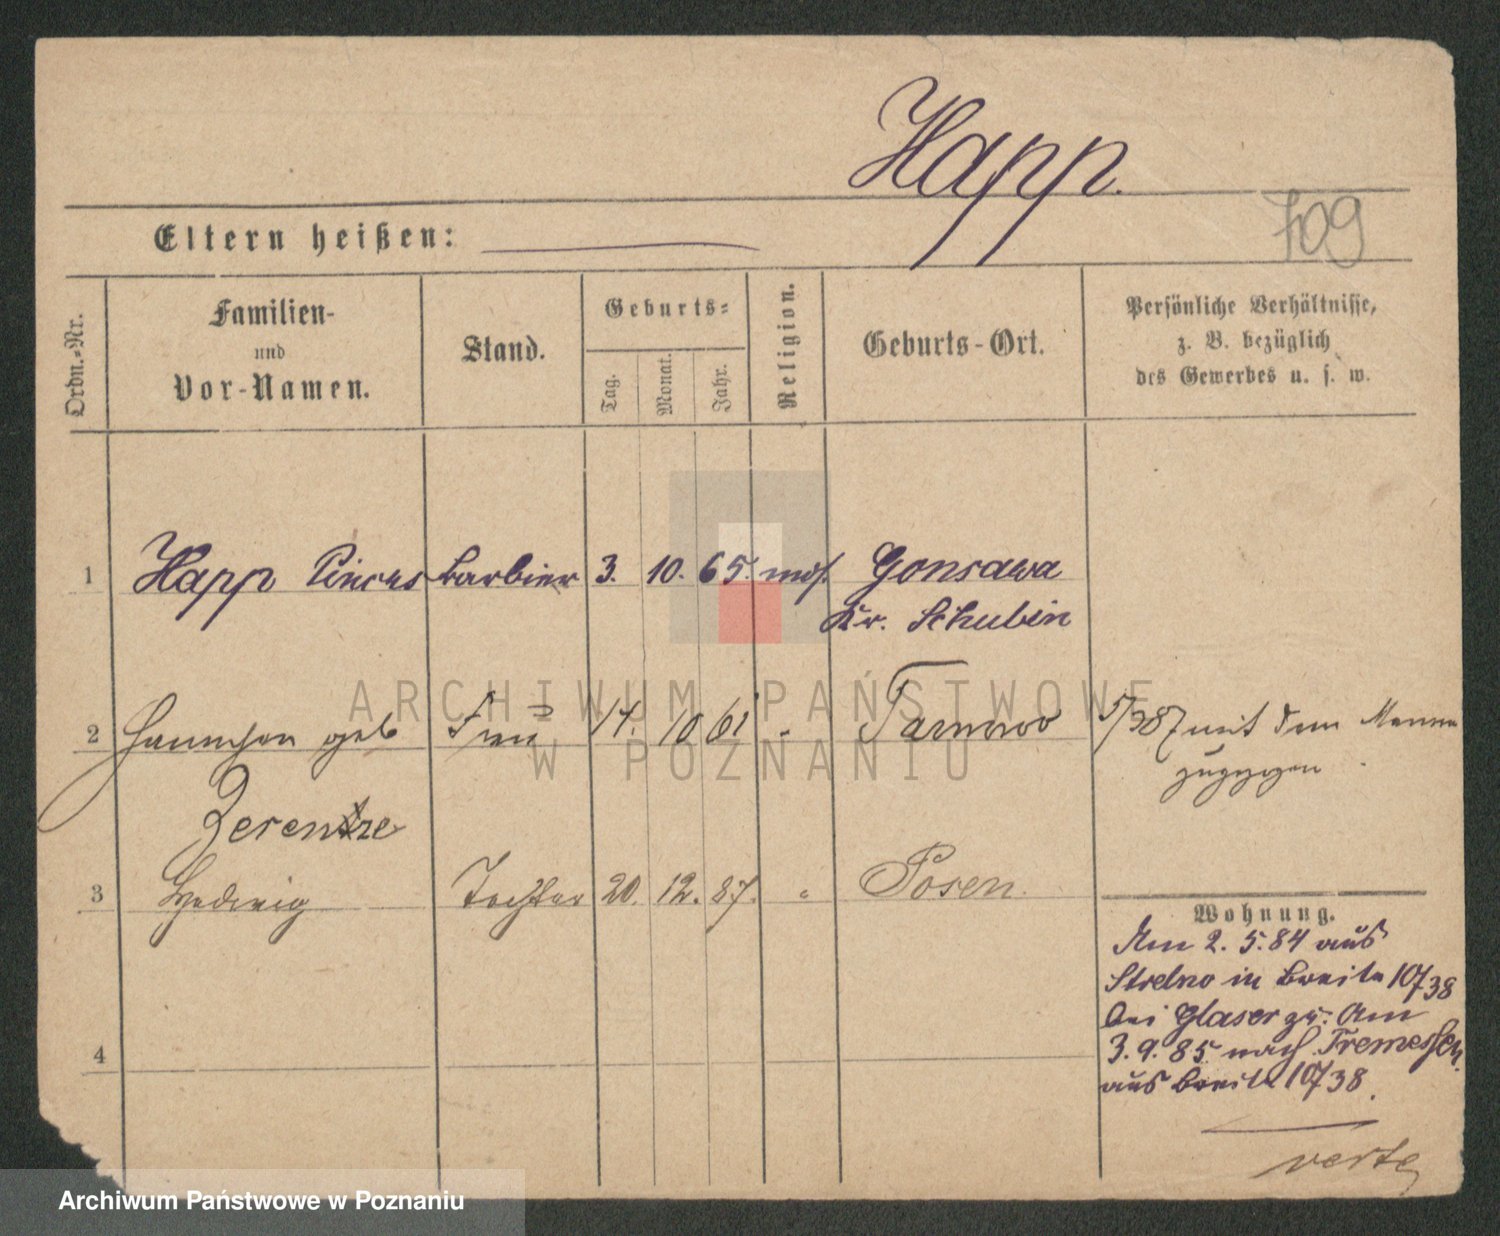 Happ.
709
Eltern heißen:
Ordn.-Nr.
Familien-
und
Vor-Namen.
Stand.
Geburts-
Tag.
Monat.
Jahr.
Religion.
Geburts-Ort.
Persönliche Verhältnisse,
z. B. bezüglich
des Gewerbes u. s. w.
1 Happ Pincus Barbier 3. 10. 65. mos. Gonsawa
Kr. Schubin
ARCHIWUM PAŃSTWOWE
W POZNANIU
2 Hannchen geb Frau 14. 10 61 " Tarnowo mit dem Manne
zugezogen
3 Hedwig Tochter 20. 12. 87. " Posen.
Wohnung.
Am 2. 5. 84 aus
Strelno in Breite 10/38
bei Glaser zu. Am
3. 9. 85 nach Tremessen
aus Breite 10/38.
4
verte
Archiwum Państwowe w Poznaniu